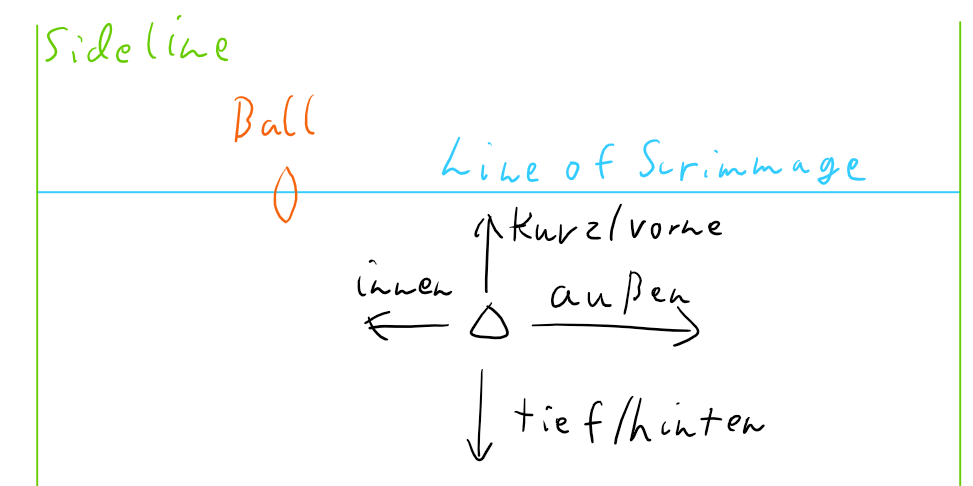 Sideline
Ball
Line of Scrimmage
kurz/vorne
innen
außen
tief/hinten